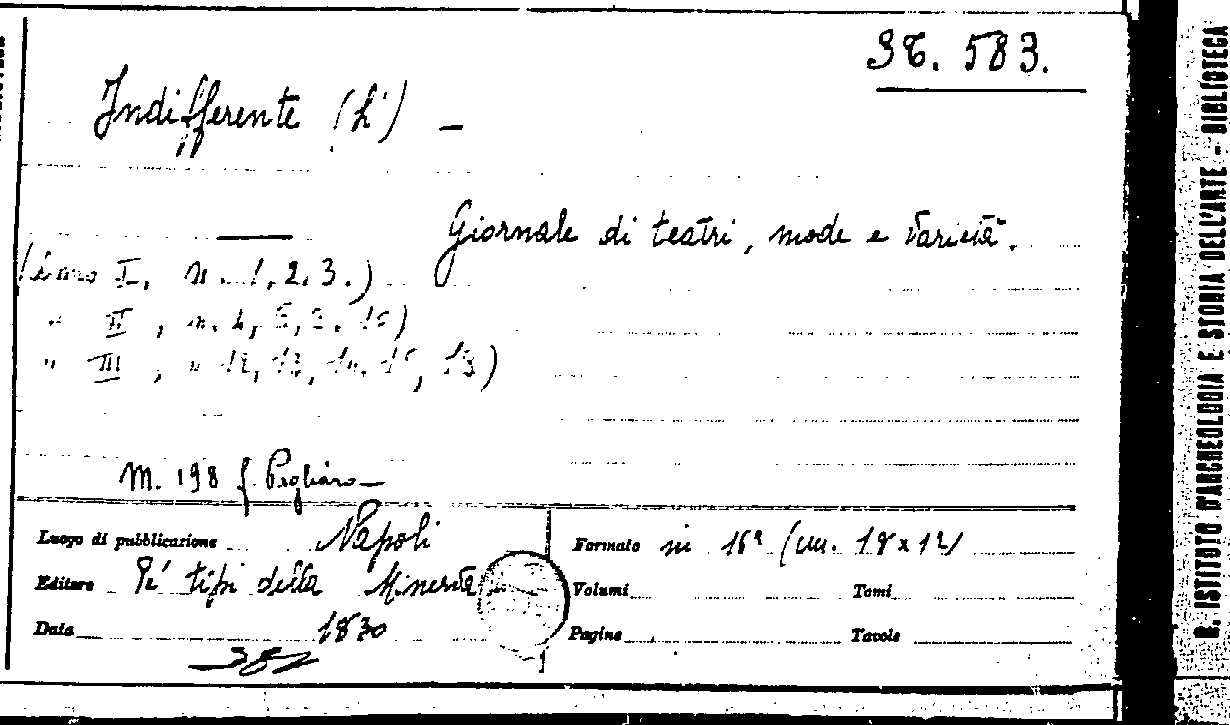 36. 583.
Indifferente (L') —
Giornale di teatri, mode e varietà.
(Anno I, n. 1, 2, 3.)
" II, n. 4, 5,
" III, n. 12, 13, 14, 15,
M. 198 f. Pogliaro —
Luogo di pubblicazione Napoli
Formato in 16° (cm. 18 x 12)
Editore Pe' tipi della Minerva
Volumi Tomi
Data 1830
Pagine Tavole
R. ISTITUTO D'ARCHEOLOGIA E STORIA DELL'ARTE - BIBLIOTECA